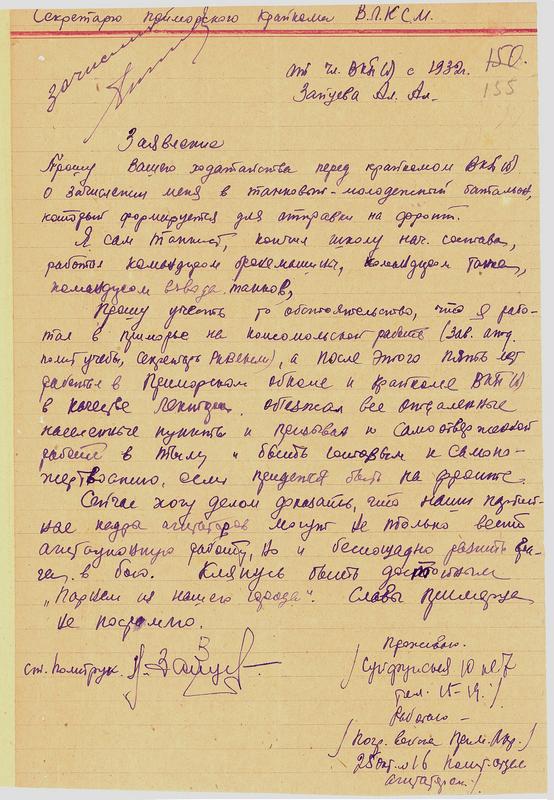 Секретарю Приморского Крайкома В.Л.К.С.М.
зачислить
150.
155
от чл. ВКП(б) с 1932г.
Зануева Ал. Ал.
Заявление
Прошу Вашего ходатайства перед крайкомом ВКП(б)
о зачислении меня в танковый-молодежный батальон,
который формируется для отправки на фронт.
Я сам танкист, кончил школу нач. состава,
работал командиром бронемашины, командиром танка,
командиром взвода танков,
Прошу учесть то обстоятельство, что я рабо-
тал в Приморье на комсомольской работе (Зав. отд.
полит учебы, Секретарь Райкома), а после этого пять лет
работы в Приморском обкоме и крайкоме ВКП(б)
в качестве лектора. объезжал все отдаленные
населенные пункты и призывал к самоотверженной
работе в тылу и быть готовым к самопо-
жертвованию, если придется быть на фронте.
Сейчас хочу делом доказать, что наши партий-
ные кадры агитаторов могут не только вести
агитационную работу, но и беспощадно разить вра-
га в бою. Клянусь быть достойным
„Парнем из нашего города". Славы приморца
не посрамлю.
ст. политрук.
Проживаю.
/Суйфунская 10 кв 7
тел. 15-19./
Работаю -
/Погр. войска Прим. окр./
25 Окт. №16 Полит-отдел
агитатором./